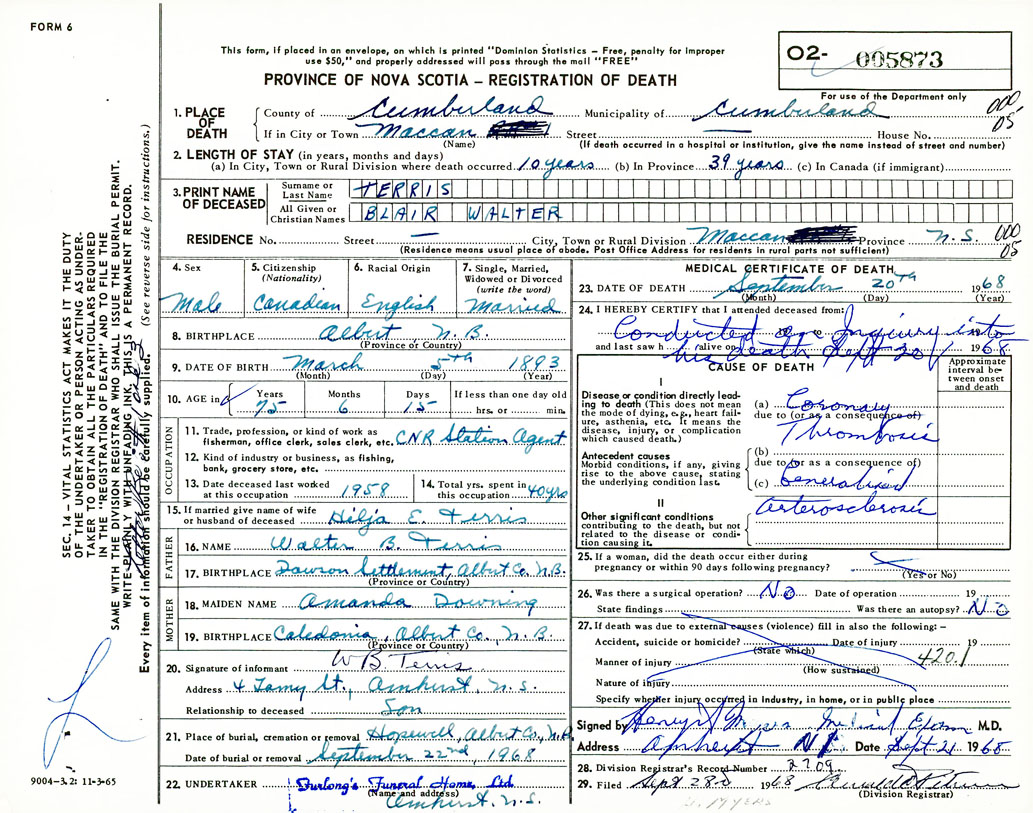 FORM 6
This form, if placed in an envelope, on which is printed "Dominion Statistics – Free, penalty for improper
use $50," and properly addressed will pass through the mail "FREE"
O2- 005873
PROVINCE OF NOVA SCOTIA – REGISTRATION OF DEATH
For use of the Department only
1. PLACE OF DEATH
County of Cumberland Municipality of Cumberland
000
05
If in City or Town Maccan Street — House No.
(Name) (If death occurred in a hospital or institution, give the name instead of street and number)
2. LENGTH OF STAY (in years, months and days)
(a) In City, Town or Rural Division where death occurred 10 years (b) In Province 39 years (c) In Canada (if immigrant)
3. PRINT NAME OF DECEASED
Surname or Last Name TERRIS
All Given or Christian Names BLAIR WALTER
RESIDENCE No. Street — City, Town or Rural Division Maccan Province N.S.
000
05
(Residence means usual place of abode. Post Office Address for residents in rural parts not sufficient)
4. Sex Male
5. Citizenship (Nationality) Canadian
6. Racial Origin English
7. Single, Married, Widowed or Divorced (write the word) Married
8. BIRTHPLACE Albert, N.B.
(Province or Country)
9. DATE OF BIRTH March 5th 1893
(Month) (Day) (Year)
10. AGE in Years 75 Months 6 Days 15 If less than one day old hrs. or min.
OCCUPATION
11. Trade, profession, or kind of work as
fisherman, office clerk, sales clerk, etc. CNR Station Agent
12. Kind of industry or business, as fishing,
bank, grocery store, etc.
13. Date deceased last worked
at this occupation 1958
14. Total yrs. spent in
this occupation 40 yrs
15. If married give name of wife
or husband of deceased Hilja E. Terris
FATHER
16. NAME Walter B. Terris
17. BIRTHPLACE Dawson Settlement, Albert Co. N.B.
(Province or Country)
MOTHER
18. MAIDEN NAME Amanda Downing
19. BIRTHPLACE Caledonia, Albert Co., N.B.
(Province or Country)
20. Signature of informant W B Terris
Address 4 St., Amherst, N.S.
Relationship to deceased Son
21. Place of burial, cremation or removal Hopewell, Albert Co., N.B.
Date of burial or removal September 22nd, 1968
22. UNDERTAKER Furlong's Funeral Home, Ltd.
(Name and address)
Amherst, N.S.
MEDICAL CERTIFICATE OF DEATH
23. DATE OF DEATH September 20th 1968
(Month) (Day) (Year)
24. I HEREBY CERTIFY that I attended deceased from:
Conducted an Inquiry into
and last saw h alive on 1968
his death Sept 20/
CAUSE OF DEATH
Approximate interval between onset and death
I
Disease or condition directly leading to death (This does not mean
the mode of dying, e.g., heart failure, asthenia, etc. It means the
disease, injury, or complication
which caused death.)
(a) Coronary
due to (or as a consequence of)
Thrombosis
Antecedent causes
Morbid conditions, if any, giving
rise to the above cause, stating
the underlying condition last.
(b)
due to (or as a consequence of)
(c) Generalized
Arterosclerosis
II
Other significant conditions
contributing to the death, but not
related to the disease or condition causing it.
25. If a woman, did the death occur either during
pregnancy or within 90 days following pregnancy?
(Yes or No)
26. Was there a surgical operation? No Date of operation 19
State findings Was there an autopsy? No
27. If death was due to external causes (violence) fill in also the following: –
Accident, suicide or homicide? Date of injury 19
(State which)
Manner of injury 420.1
(How sustained)
Nature of injury
Specify whether injury occurred in Industry, in home, or in public place
Signed by M.D.
Address Amherst N.S. Date Sept 21 1968
28. Division Registrar's Record Number 2709
29. Filed Sept 1968
(Division Registrar)
SEC. 14 – VITAL STATISTICS ACT MAKES IT THE DUTY
OF THE UNDERTAKER OR PERSON ACTING AS UNDER-
TAKER TO OBTAIN ALL THE PARTICULARS REQUIRED
IN THE "REGISTRATION OF DEATH" AND TO FILE THE
SAME WITH THE DIVISION REGISTRAR WHO SHALL ISSUE THE BURIAL PERMIT.
WRITE PLAINLY WITH UNFADING INK, THIS IS A PERMANENT RECORD.
Every item of information should be carefully supplied. (See reverse side for instructions.)
9004–3.2: 11-3-65